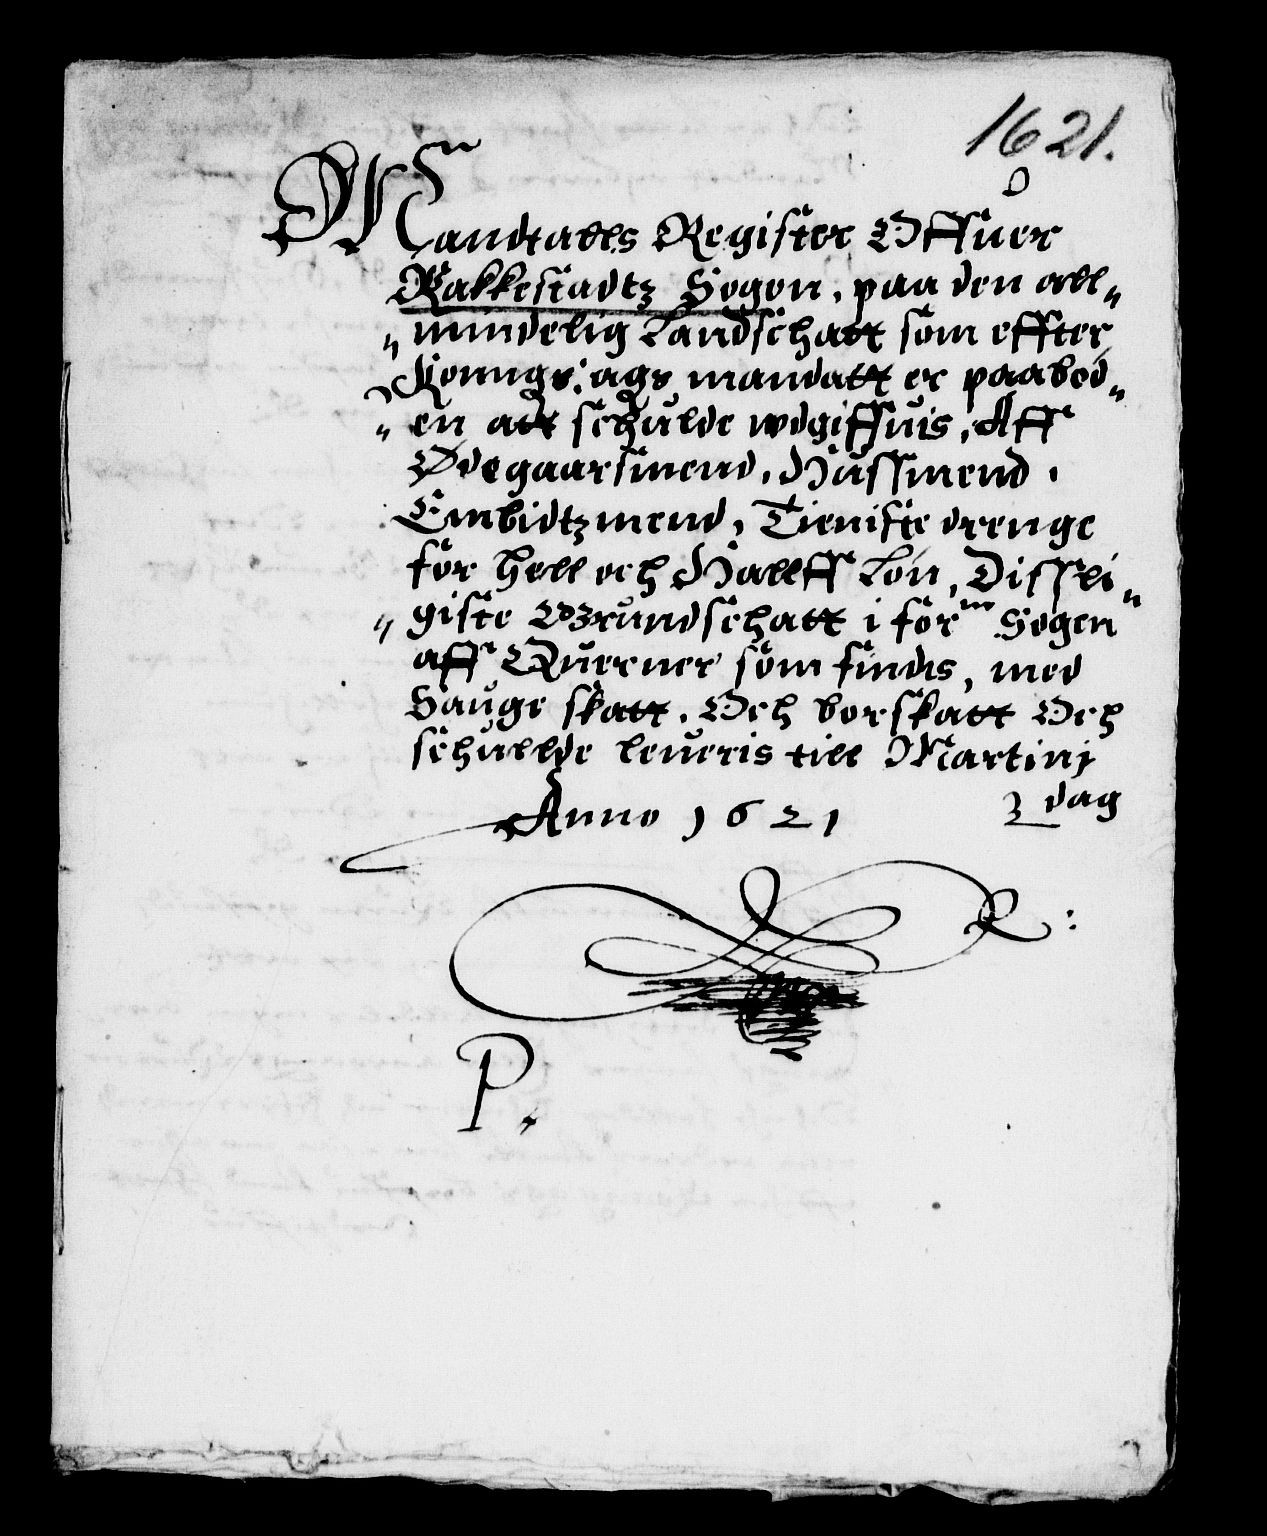 1621.
Mandtalls Register Offuer
Rakkestadtz Sogen, paa den all„
„mindelig Landschatt som effter
Konngs: ags mandatt er paabod„
„en att schulde wdgiffuis, Aff
Ødegaarsmend, Hussmend,
Embidtzmend, Tieniste drenge
for hell och Hallff Lön, Disseli„
„giste Grundschatt i forⁿᵉ Sogen
aff Querner som findis, med
Sauge skatt, Och borskatt Och
schullde leueris till Martinj
dag
Anno 1621
R:
P.